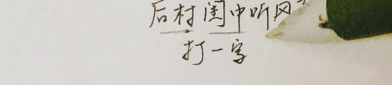 后村闺中听风
打一字